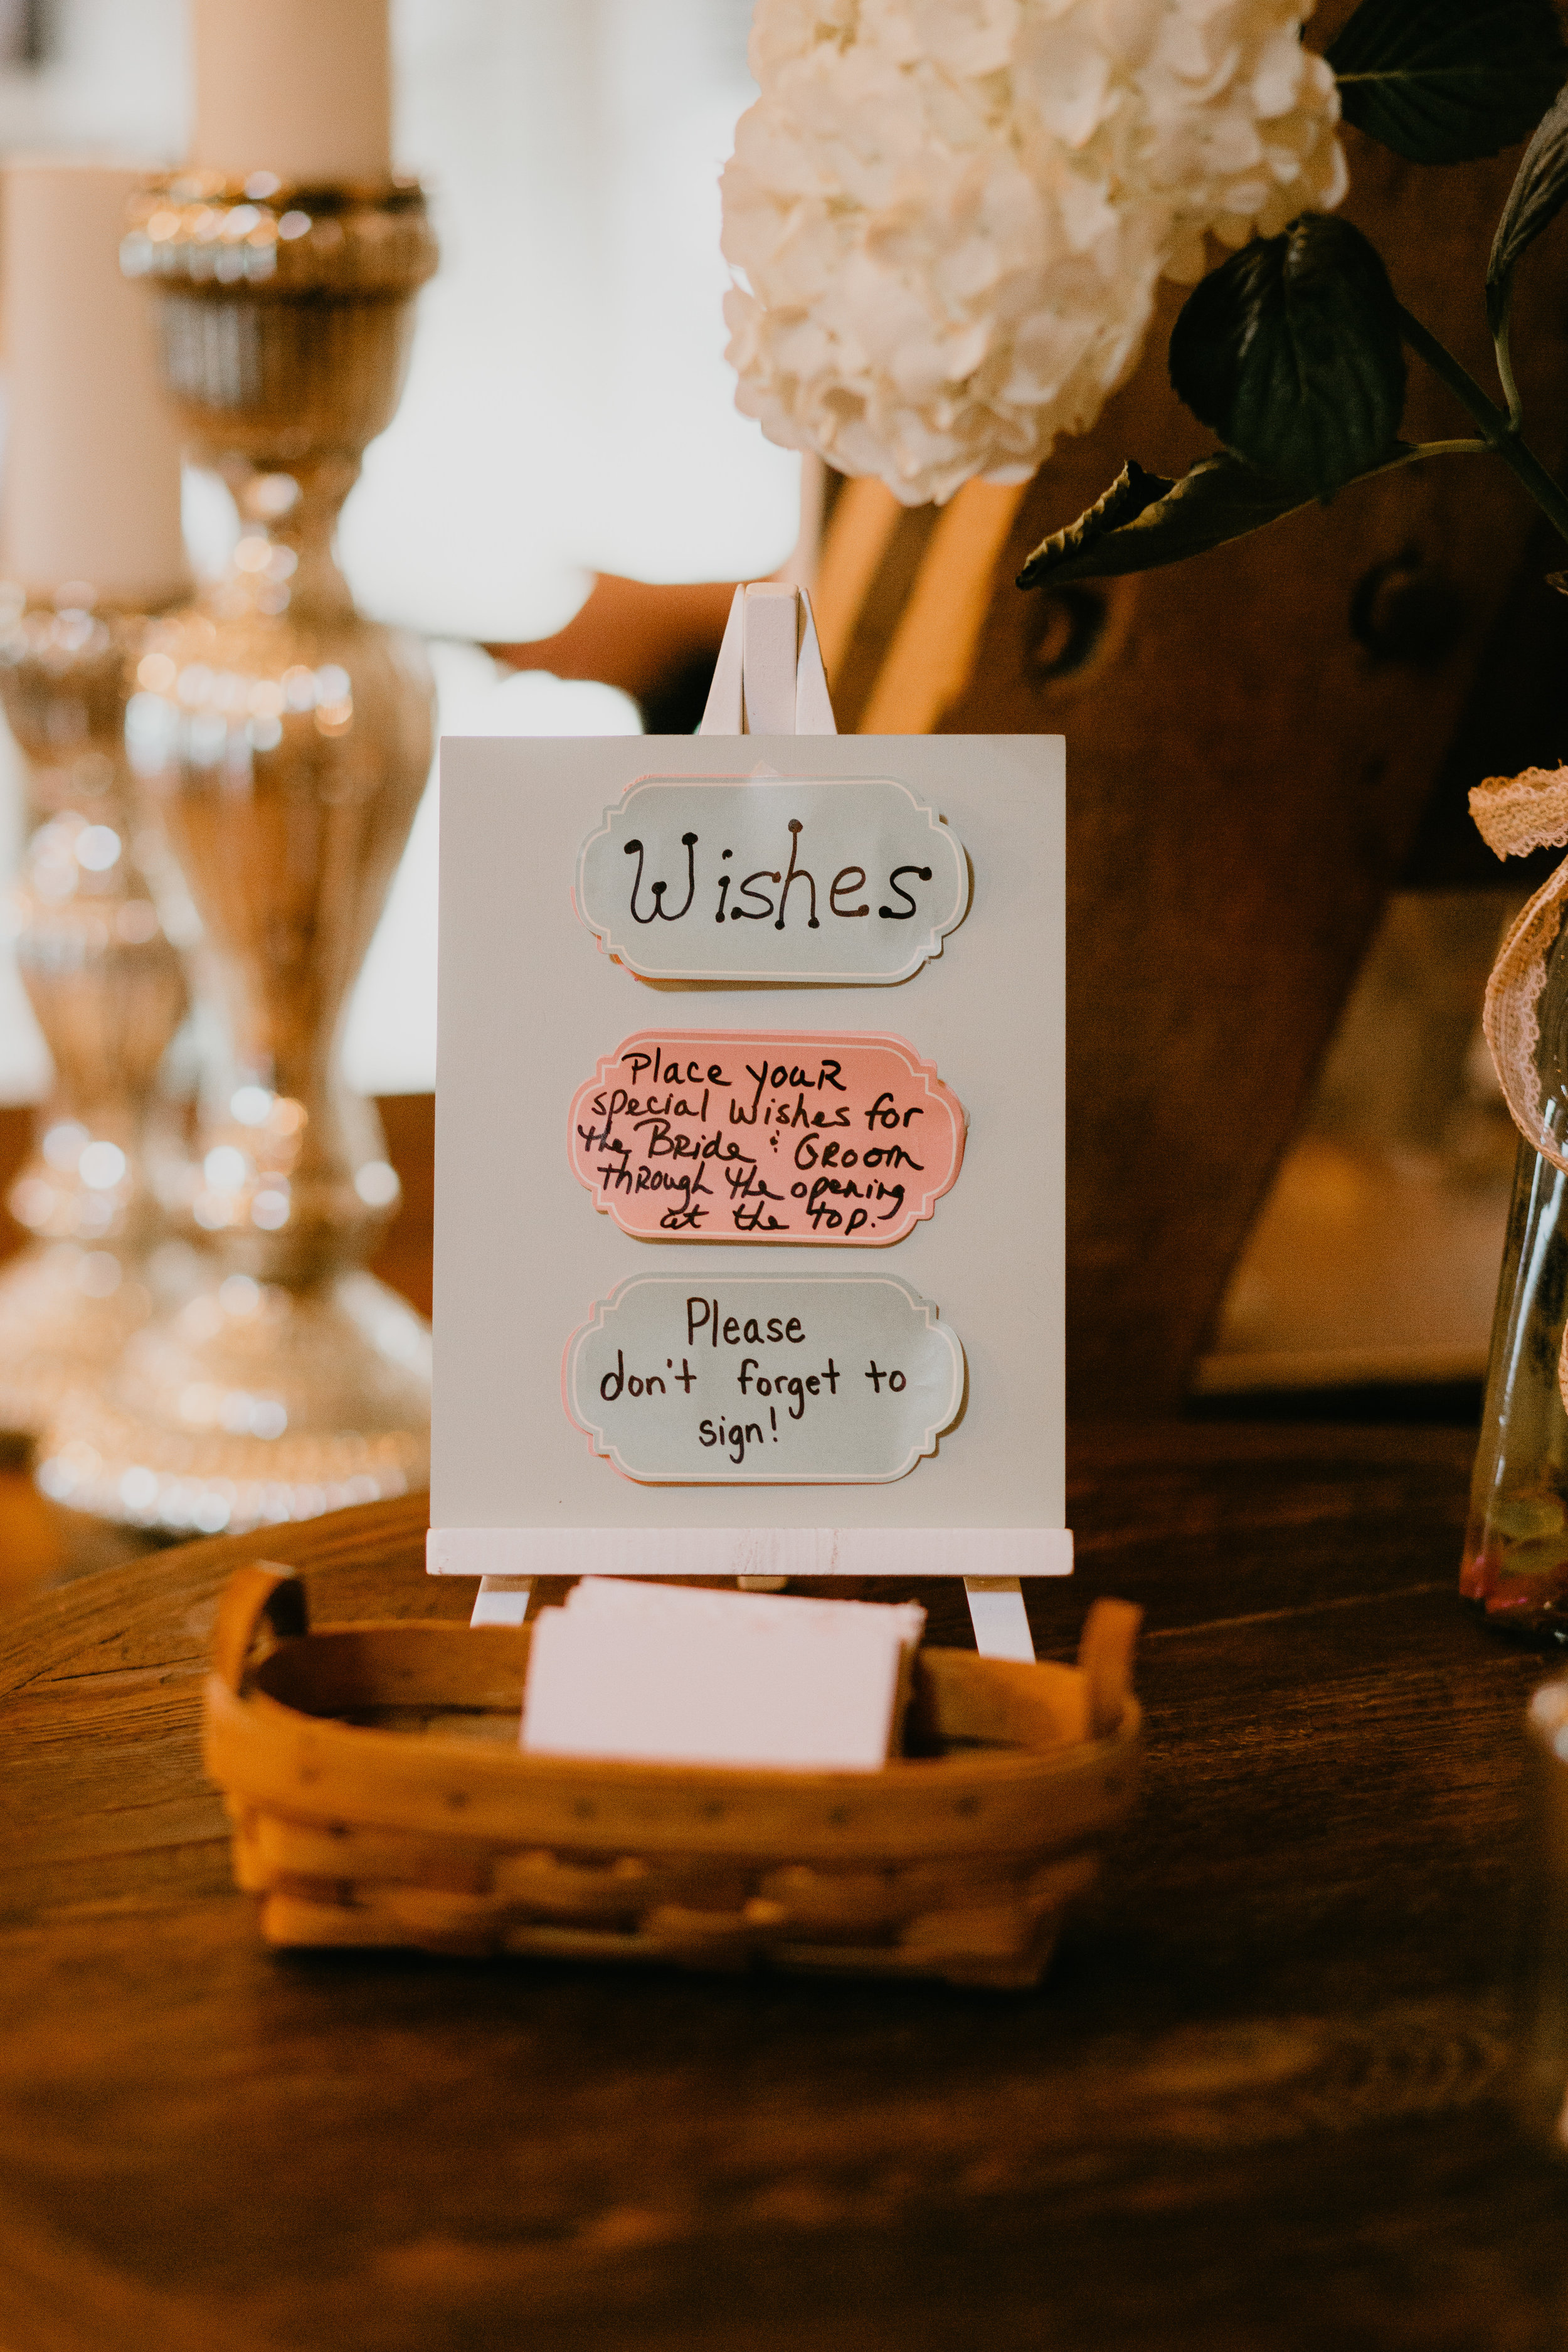 Wishes
Place your
special wishes for
the Bride & Groom
through the opening
at the top.
Please
don't forget to
sign!